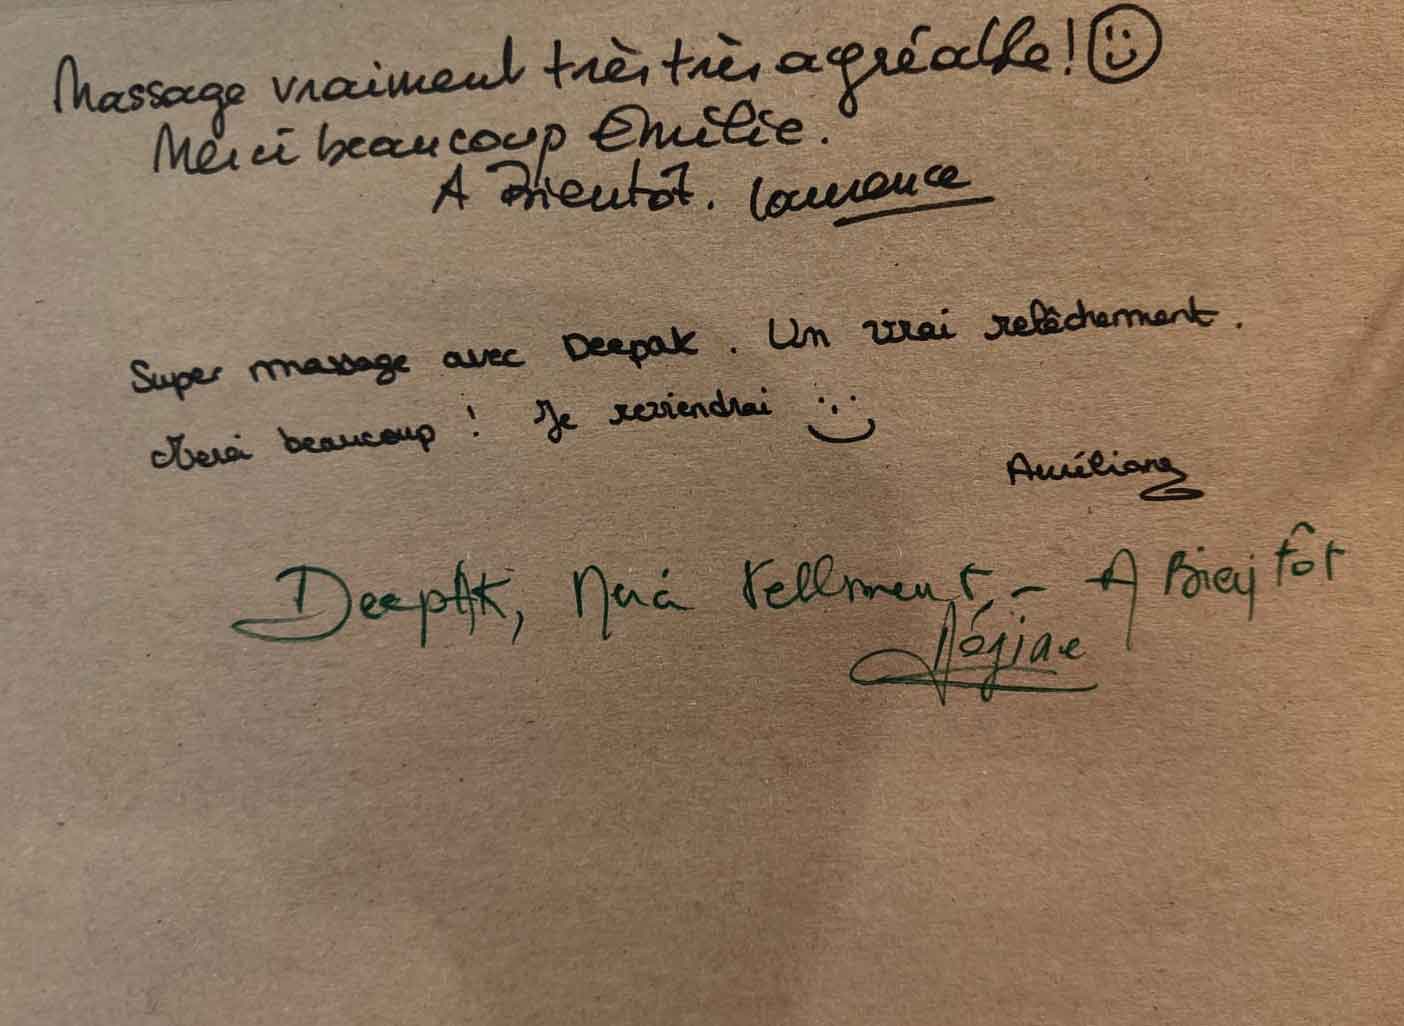 Massage vraiment très très agréable !
Merci beaucoup Emilie.
A Bientôt. Laurence
Super massage avec Deepak. Un vrai relâchement.
Merci beaucoup ! Je reviendrai
Deepak, Merci tellment - A Bientôt